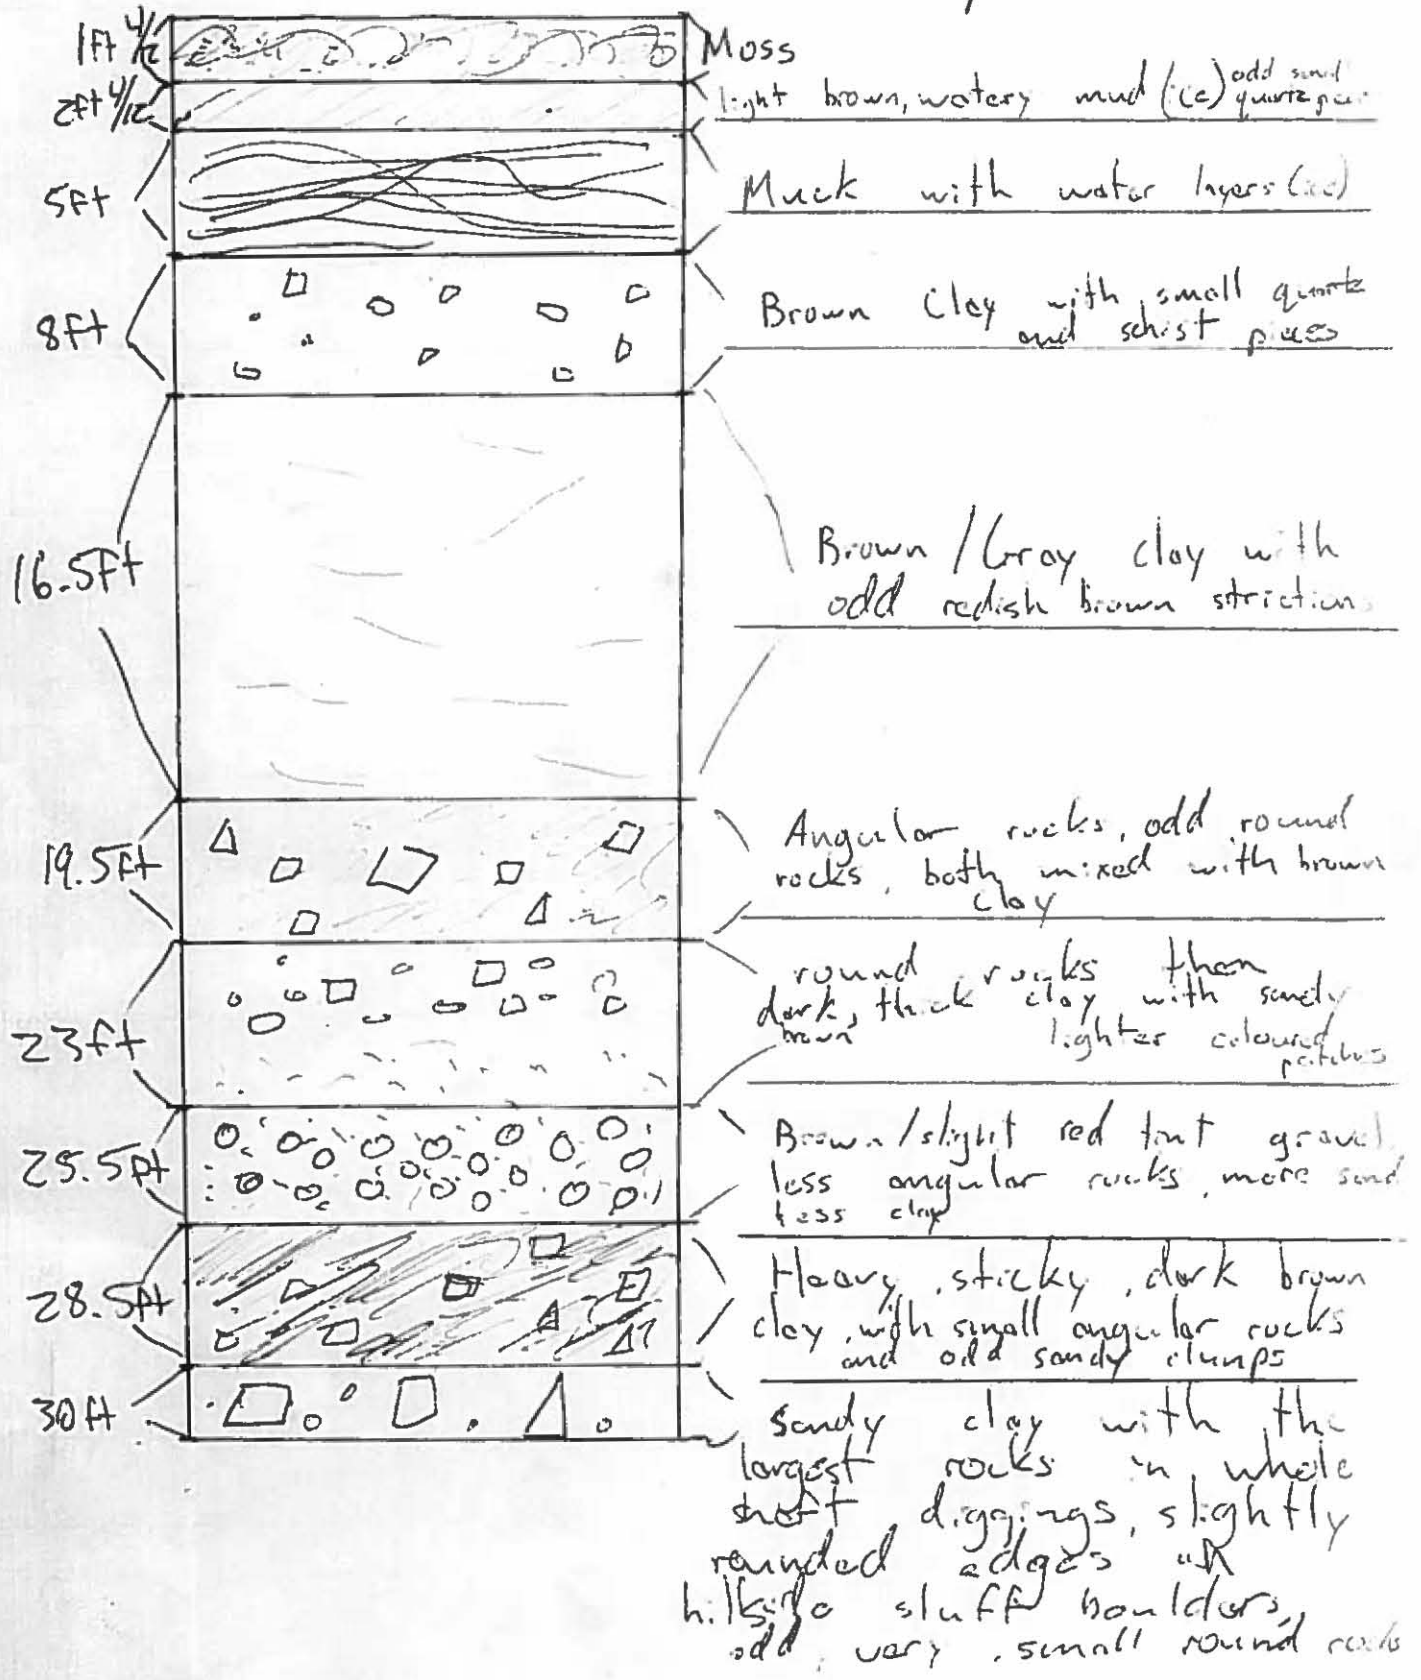 1ft 4/12
Moss
2ft 4/12
light brown, watery mud (ice) odd small
quartz
5ft
Muck with water layers (ice)
8ft
Brown Clay with small quartz
and schist pieces
16.5ft
Brown/Gray clay with
odd redish brown striction
19.5ft
Angular rocks, odd round
rocks, both mixed with brown
clay
23ft
round rocks then
dark, thick clay with sandy
brown lighter coloured
patches
25.5ft
Brown/slight red tint gravel
less angular rocks, more sand
less clay
28.5ft
Heavy, sticky, dark brown
clay, with small angular rocks
and odd sandy clumps
30ft
Sandy clay with the
largest rocks in whole
shaft diggings, slightly
rounded edges
hillside sluff boulders,
odd, very, small round rocks